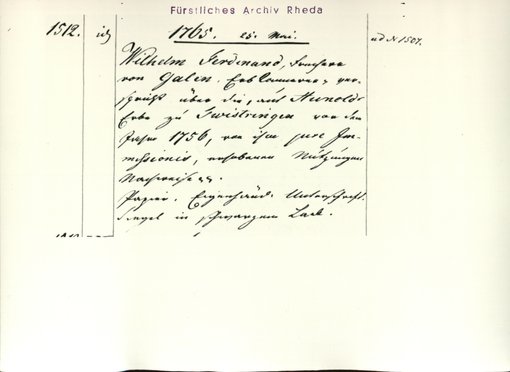 Fürstliches Archiv Rheda
1512. ich 1765. 25. Mai. ad N 1507.
Wilhelm Ferdinand, Freyherr
von Galen, Erbkämmerer, ver-
spricht über die, aus Hunolds
Erbe zu Zwistringen vor dem
Jahre 1756, von ihm jure Im-
missionis, erhobenen Nützungen
Nachweise
Papier. Eigenhänd. Unterschrift.
Siegel in schwarzem Lack.